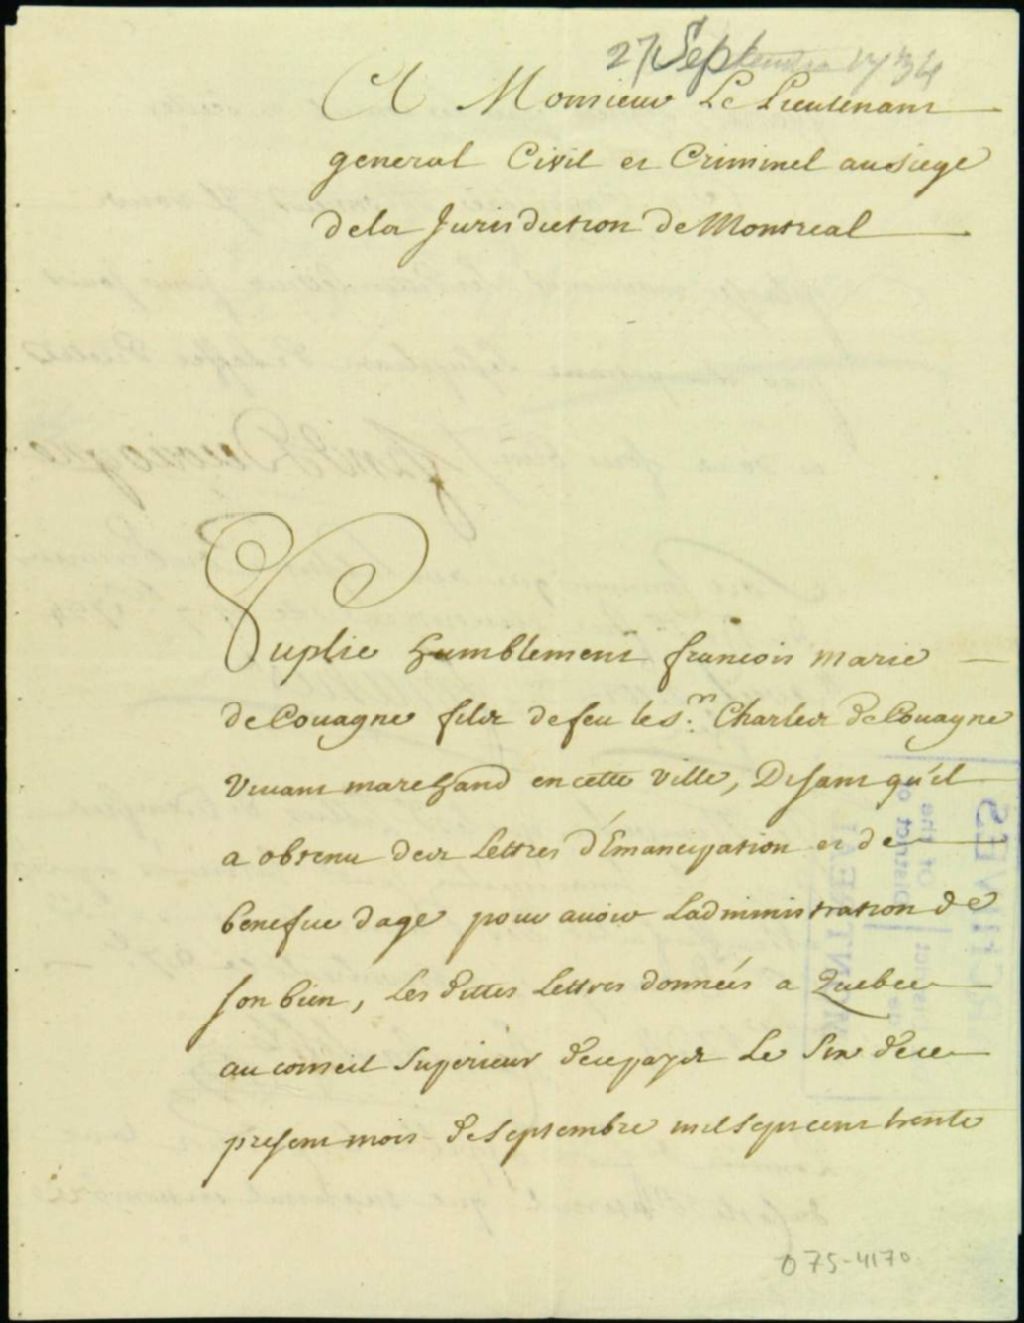 27 Septembre 1734
A Monsieur Le Lieutenant
general Civil et Criminel au siege
de la Jurisdiction de Montreal
Suplie humblement françois marie
de Couagne fils de feu le Sr. Charles de Couagne
vivant marchand en cette ville, Disant qu'il
a obtenu des Lettres d'Emancipation et de
benefice dage pour avoir Ladministration de
son bien, Les dittes Lettres données a Quebec
au conseil Superieur de ce pays Le Six de ce
present mois de Septembre mil Sept cent trente
075-4170